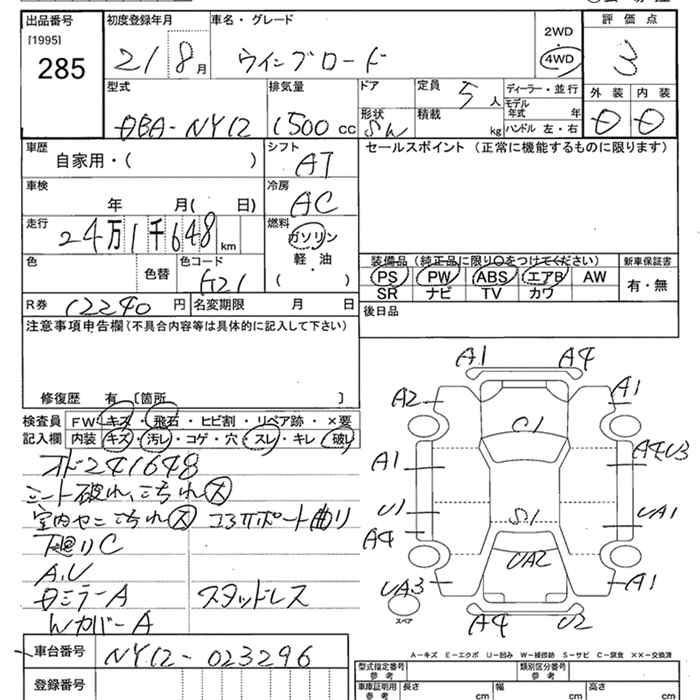 出品番号
[1995]
285
初度登録年月
21 8月
車名・グレード
ウイングロード
2WD
4WD
評価点
3
外装 内装
型式
DBA-NY12
排気量
1500cc
ドア
形状
SW
定員 5人
積載 kg
ディーラー・並行
モデル年式 年
ハンドル 左・右
車歴
自家用・( )
シフト
AT
セールスポイント (正常に機能するものに限ります)
車検
年 月( 日)
冷房
AC
走行
24万1千648km
燃料
ガソリン
軽・油
( )
色
色替
色コード
G21
装備品 (純正品に限り○をつけてください)
PS PW ABS エアB AW
SR ナビ TV カワ
新車保証書
有・無
R券 12240円
名変期限 月 日
後日品
注意事項申告欄(不具合内容等は具体的に記入して下さい)
修復歴 有 [箇所 ]
検査員
記入欄
FW キズ・飛石・ヒビ割・リペア跡・×要
内装 キズ・汚レ・コゲ・穴・スレ・キレ・破レ
オド241648
シート破れ、こちれ大
室内ヤニこちれ大 コラムポート曲り
下廻りC
A.U
Dミラー A スタッドレス
Wカバー A
A1 A4
A2 A1
C1
A1 A4U3
U1 S1 UA1
A4 UA2
UA3 A1
スペア
A4 U2
車台番号
NY12-023296
A-キズ E-エクボ U-凹み W-補修跡 S-サビ C-腐食 ××-交換済
登録番号
型式指定番号
参考
類別区分番号
参考
車庫証明用
参考
長さ cm
幅 cm
高さ cm